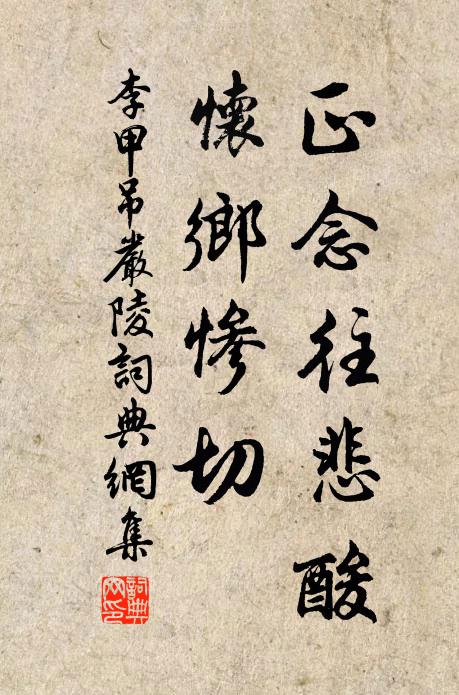 正念往悲酸
懷鄉慘切
李甲吊嚴陵詞典網集
詞典网印